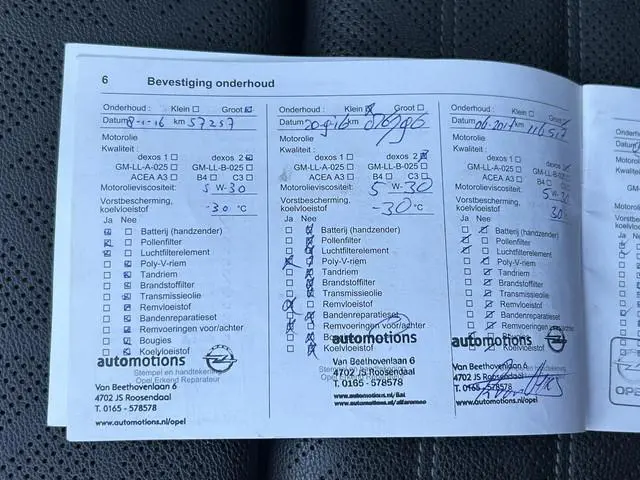 6 Bevestiging onderhoud
Onderhoud : Klein Groot
Datum 8-1-16 km 57257
Motorolie
Kwaliteit :
dexos 1 dexos 2
GM-LL-A-025 GM-LL-B-025
ACEA A3 B4 C3
Motorolieviscositeit: 5 W-30
Vorstbescherming,
koelvloeistof -30 °C
Ja Nee
Batterij (handzender)
Pollenfilter
Luchtfilterelement
Poly-V-riem
Tandriem
Brandstoffilter
Transmissieolie
Remvloeistof
Bandenreparatieset
Remvoeringen voor/achter
Bougies
Koelvloeistof
automotions
Stempel en handtekening
Opel Erkend Reparateur
Van Beethovenlaan 6
4702 JS Roosendaal
T. 0165 - 578578
www.automotions.nl/opel
Onderhoud : Klein Groot
Datum km
Motorolie
Kwaliteit :
dexos 1 dexos 2
GM-LL-A-025 GM-LL-B-025
ACEA A3 B4 C3
Motorolieviscositeit: 5 W-30
Vorstbescherming,
koelvloeistof -30 °C
Ja Nee
Batterij (handzender)
Pollenfilter
Luchtfilterelement
Poly-V-riem
Tandriem
Brandstoffilter
Transmissieolie
Remvloeistof
Bandenreparatieset
Remvoeringen voor/achter
Koelvloeistof
automotions
Van Beethovenlaan 6
4702 JS Roosendaal
T. 0165 - 578578
www.automotions.nl/fiat
www.automotions.nl/alfaromeo
Onderhoud : Klein Groot
Datum km
Motorolie
Kwaliteit :
dexos 1 dexos 2
GM-LL-A-025 GM-LL-B-025
ACEA A3 B4 C3
Motorolieviscositeit: 5 W-30
Vorstbescherming,
koelvloeistof 30
Ja Nee
Batterij (handzender)
Pollenfilter
Luchtfilterelement
Poly-V-riem
Tandriem
Brandstoffilter
Transmissieolie
Remvloeistof
Bandenreparatieset
Remvoeringen
Bougies
Koelvloeistof
automotions
Van Beethovenlaan 6
4702 JS Roosendaal
T. 0165 - 578578
www.automotions.nl/opel
Ja